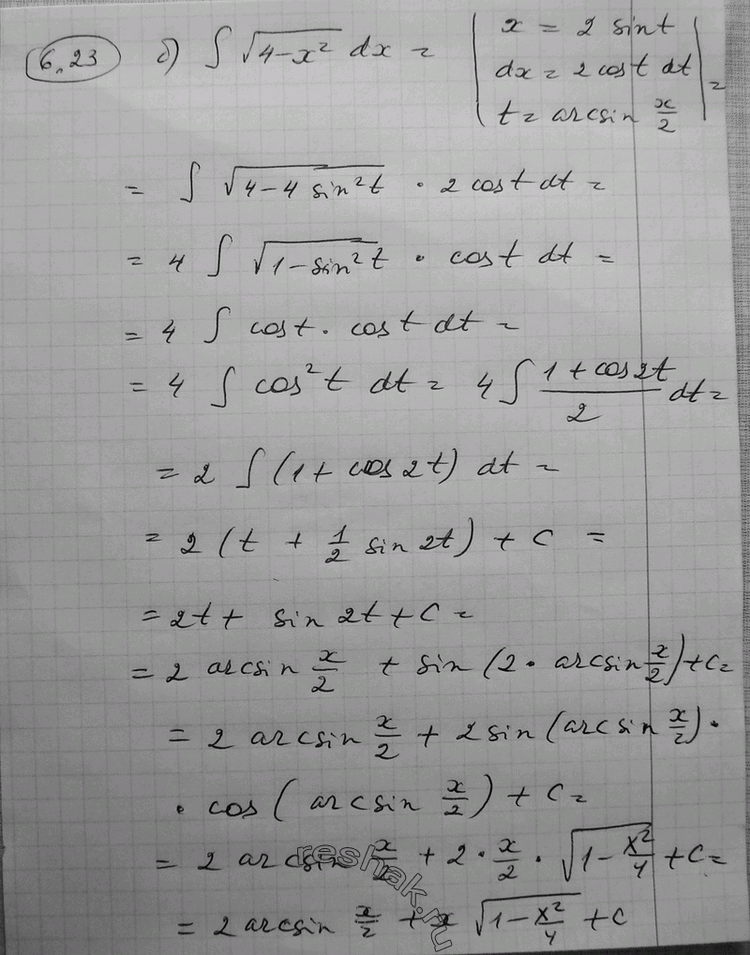 6.23 б) ∫ √(4-x²) dx = | x = 2 sin t
dx = 2 cos t dt
t = arcsin x/2 | =
= ∫ √(4-4 sin²t) · 2 cos t dt =
= 4 ∫ √(1-sin²t) · cos t dt =
= 4 ∫ cos t · cos t dt =
= 4 ∫ cos²t dt = 4 ∫ (1 + cos 2t)/2 dt =
= 2 ∫ (1 + cos 2t) dt =
= 2 (t + 1/2 sin 2t) + C =
= 2t + sin 2t + C =
= 2 arcsin x/2 + sin (2 · arcsin x/2) + C =
= 2 arcsin x/2 + 2 sin (arcsin x/2) ·
· cos (arcsin x/2) + C =
= 2 arcsin x/2 + 2 · x/2 · √(1 - x²/4) + C =
= 2 arcsin x/2 + x √(1 - x²/4) + C
reshak.ru